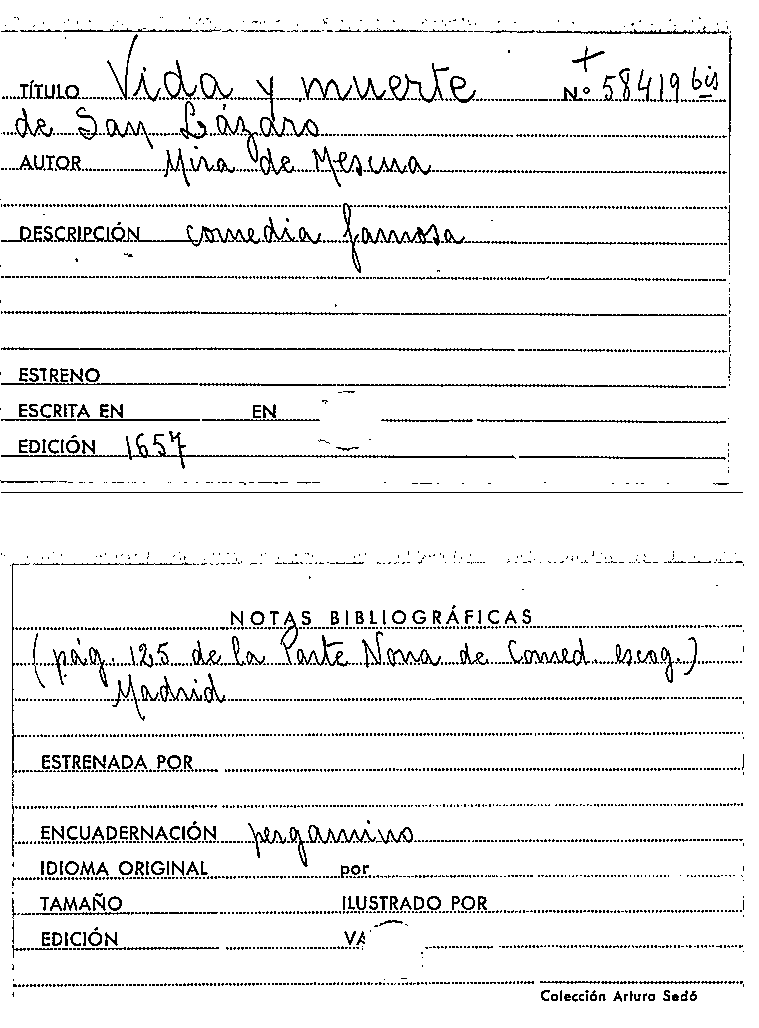 TÍTULO Vida y muerte Nº + 58419 bis
de San Lázaro
AUTOR Mira de Mescua
DESCRIPCIÓN comedia famosa
ESTRENO
ESCRITA EN EN
EDICIÓN 1657
NOTAS BIBLIOGRÁFICAS
(pág. 125 de la Parte Nona de Comed. escog.)
Madrid
ESTRENADA POR
ENCUADERNACIÓN pergamino
IDIOMA ORIGINAL por
TAMAÑO ILUSTRADO POR
EDICIÓN VA
Colección Arturo Sedó